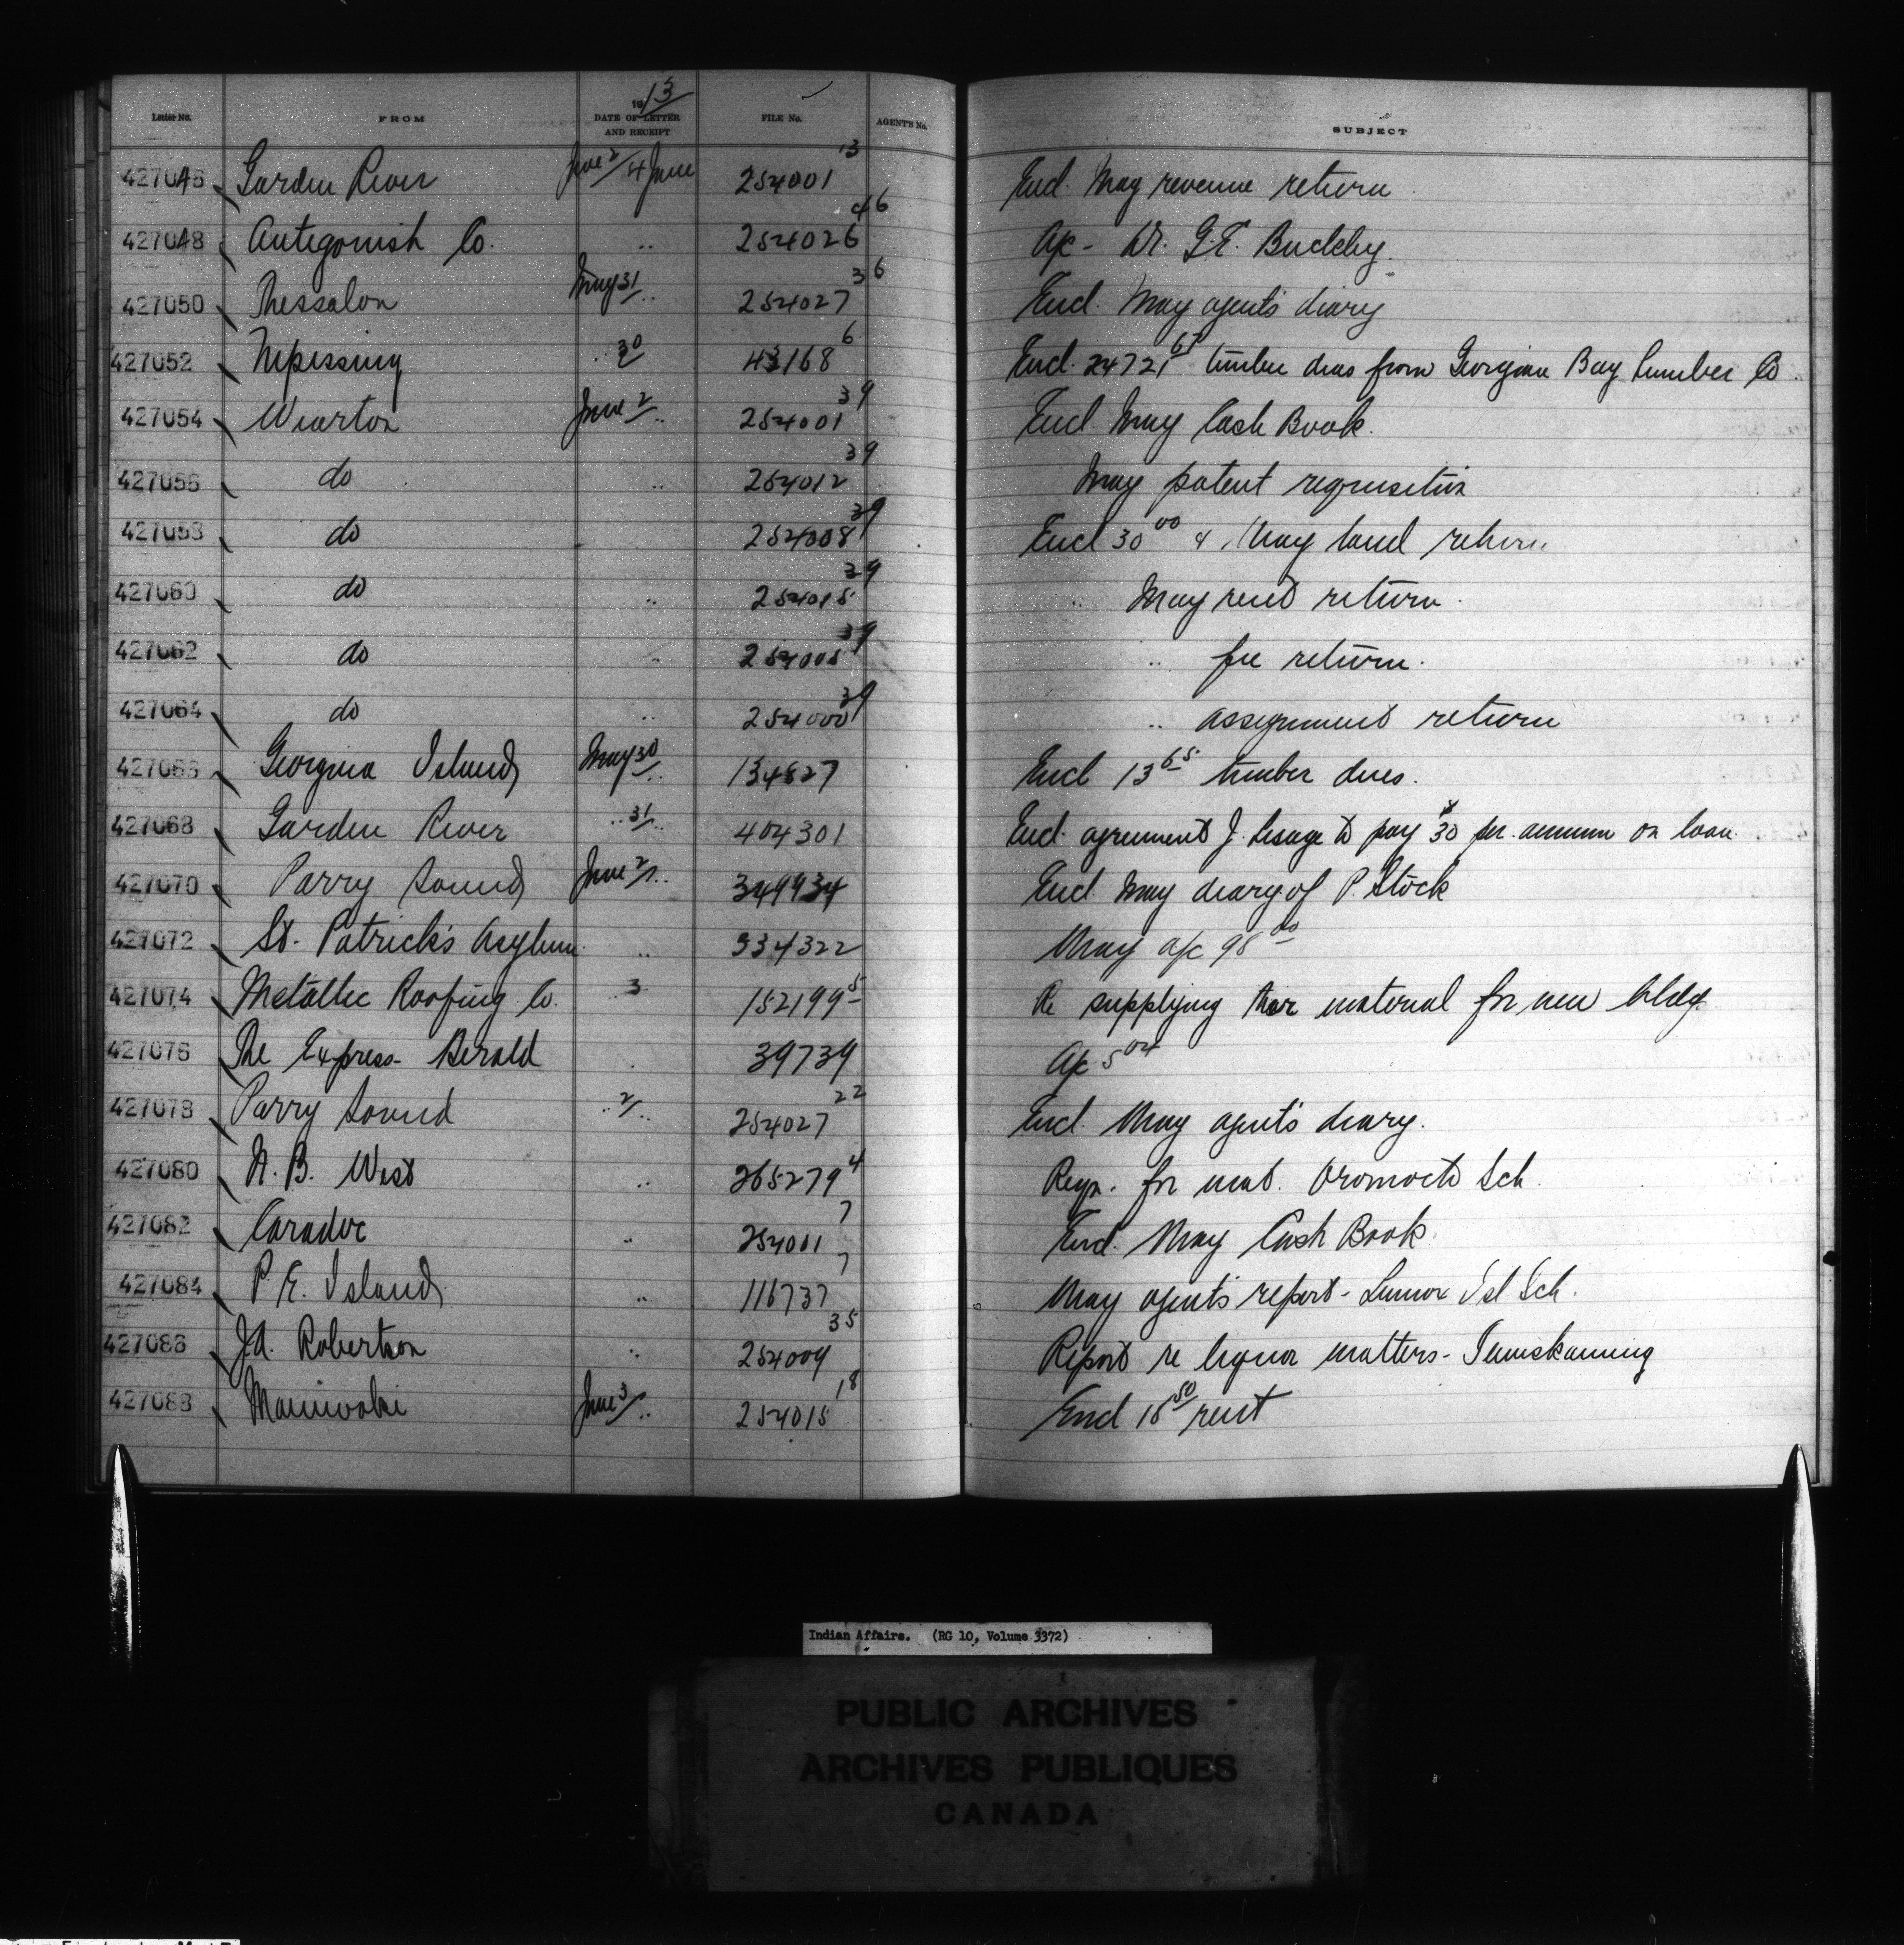 Letter No. FROM 1913 DATE OF LETTER AND RECEIPT FILE No. AGENT'S No. SUBJECT
427046 Garden River June 2/4 June 254001 13 Encl. May revenue return
427048 Antigonish Co. " 254026 46 A/c - Dr. G.E. Buckley
427050 Thessalon May 31/ " 254027 36 Encl. May agent's diary
427052 Nipissing " 30/ 43168 6 Encl. 24721 65 timber dues from Georgian Bay Lumber Co.
427054 Wiarton June 2/ " 254001 39 Encl. May Cash Book.
427056 do " 254012 39 May patent requisition
427058 do 254008 39 Encl 30 00 & May land return
427060 do " 254015 39 " May rent return.
427062 do " 254005 39 " fee return.
427064 do " 254000 39 " assignment return
427066 Georgina Island May 30/ " 134827 Encl 13 65 timber dues.
427068 Garden River " 31/ " 404301 Encl. agreement J. Lesage to pay $30 per annum on loan.
427070 Parry Sound June 2/ " 349934 Encl. May diary of P. Stock
427072 St. Patrick's Asylum " 334322 May a/c 98 00
427074 Metallic Roofing Co. " 3 152199 5 Re supplying their material for new bldg.
427076 The Express-Herald 39739 A/c 5 04
427078 Parry Sound " 2/ " 254027 22 Encl. May agent's diary.
427080 N. B. West " 265279 4 Reqn. for mat. Oromocto Sch.
427082 Caradoc " 254001 7 Encl. May Cash Book.
427084 P. E. Island " 116737 7 May agent's report - Lennox Isl Sch.
427086 J.A. Robertson " 254009 35 Report re liquor matters - Temiskaming
427088 Maniwaki June 3/ " 254015 18 Encl 16 50 rent
Indian Affairs. (RG 10, Volume 3372)
PUBLIC ARCHIVES
ARCHIVES PUBLIQUES
CANADA